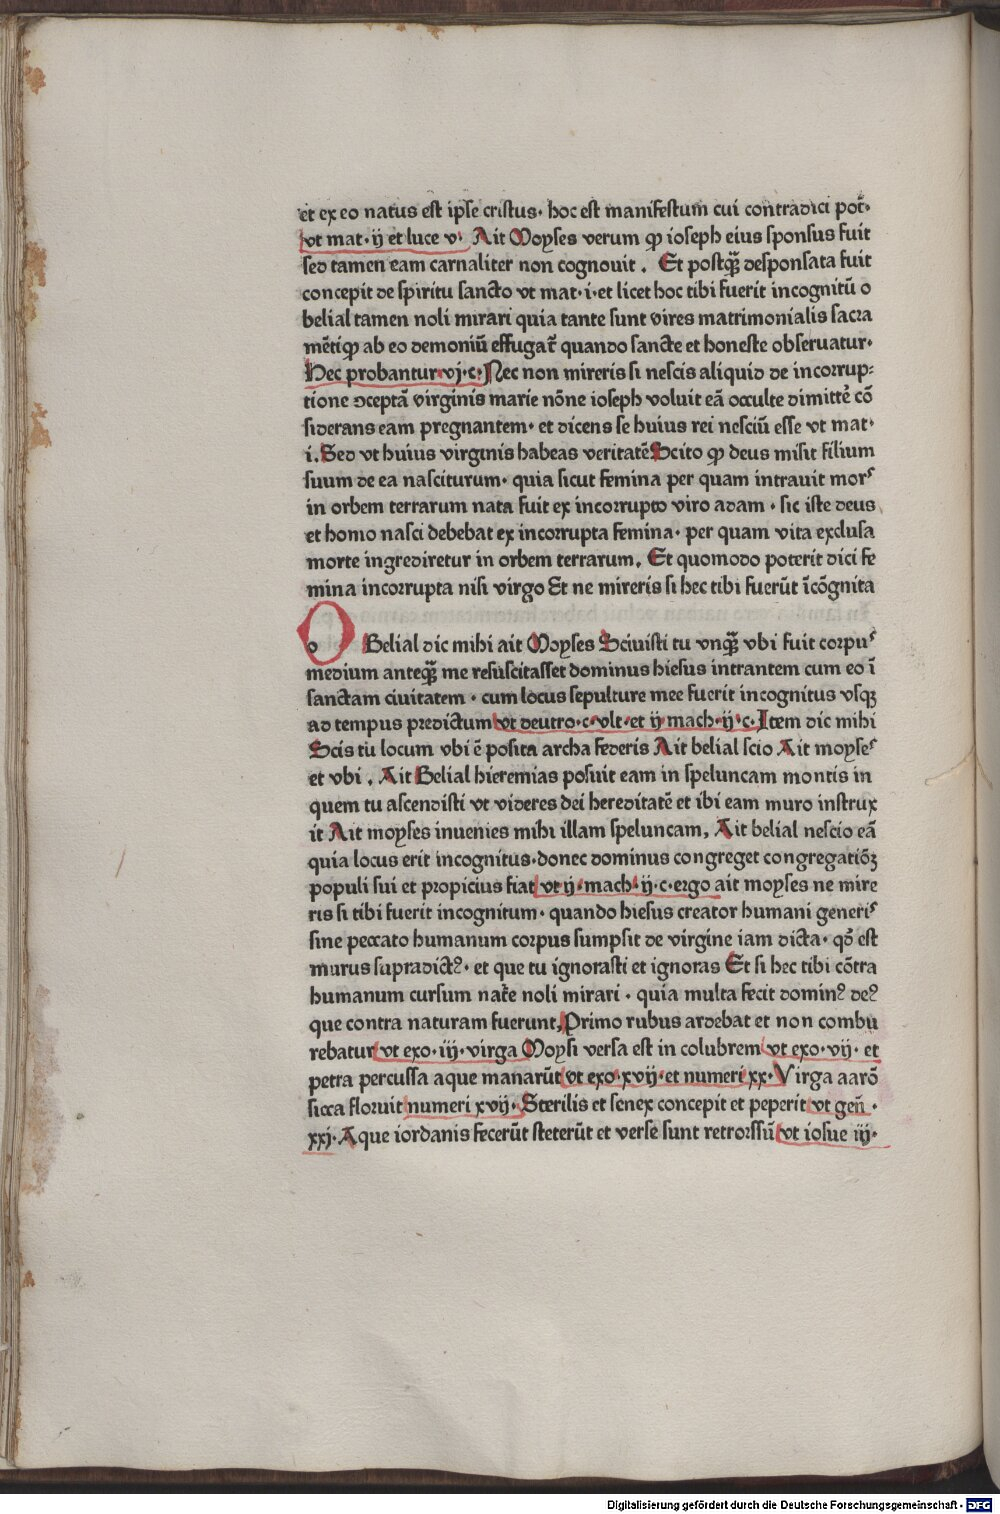 et ex eo natus est ipse cristus· hoc est manifestum cui contradici pot̄·
vt mat·ij et luce v· Ait Moyses verum ꝙ ioseph eius sponsus fuit
sed tamen eam carnaliter non cognouit . Et postꝗ̄ desponsata fuit
concepit de spiritu sancto vt mat·i·et licet hoc tibi fuerit incognitū o
belial tamen noli mirari quia tante sunt vires matrimonialis sacra
mētiꝙ ab eo demoniū effugat̄ quando sancte et honeste obseruatur·
Hec probantur·vj·c·Nec non mireris si nescis aliquid de incorrup:
tione ↄceptā virginis marie nōne ioseph voluit eā occulte dimitte᷑ cō
siderans eam pregnantem· et dicens se huius rei nesciū esse vt mat·
i.Sed vt huius virginis habeas veritatē Scito ꝙ deus misit filium
suum de ea nasciturum· quia sicut femina per quam intrauit mors
in orbem terrarum nata fuit ex incorrupto viro adam · sic iste deus
et homo nasci debebat ex incorrupta femina· per quam vita exclusa
morte ingrediretur in orbem terrarum. Et quomodo poterit dici fe
mina incorrupta nisi virgo Et ne mireris si hec tibi fuerūt īcōgnita
O Belial dic mihi ait Moyses Sciuisti tu vnꝗ̄ vbi fuit corpus
medium anteꝗ̄ me resuscitasset dominus hiesus intrantem cum eo ī
sanctam ciuitatem · cum locus sepulture mee fuerit incognitus vsqꝫ
ad tempus predictum vt deutro·c·vlt·et ij mach·ij·c·Item dic mihi
Scis tu locum vbi ē posita archa federis Ait belial scio Ait moyses
et vbi . Ait Belial hieremias posuit eam in speluncam montis in
quem tu ascendisti vt videres dei hereditatē et ibi eam muro instrux
it Ait moyses inuenies mihi illam speluncam, Ait belial nescio eā
quia locus erit incognitus·donec dominus congreget congregatiōꝫ
populi sui et propicius fiat vt ij·mach·ij·c·ergo ait moyses ne mire
ris si tibi fuerit incognitum· quando hiesus creator humani generis
sine peccato humanum corpus sumpsit de virgine iam dicta· qd̄ est
murus supradictꝰ· et que tu ignorasti et ignoras Et si hec tibi cōtra
humanum cursum nat̄e noli mirari · quia multa fecit dominꝰ deꝰ
que contra naturam fuerunt,Primo rubus ardebat et non combu
rebatur vt exo·iij·virga Moysi versa est in colubrem vt exo·vij· et
petra percussa aque manarūt vt exo·xvij·et numeri xx·Virga aarō
sicca floruit numeri xvij·Sterilis et senex concepit et peperit vt geñ ·
xxj·Aque iordanis fecerūt steterūt et verse sunt retrorssū vt iosue iij·
Digitalisierung gefördert durch die Deutsche Forschungsgemeinschaft - DFG